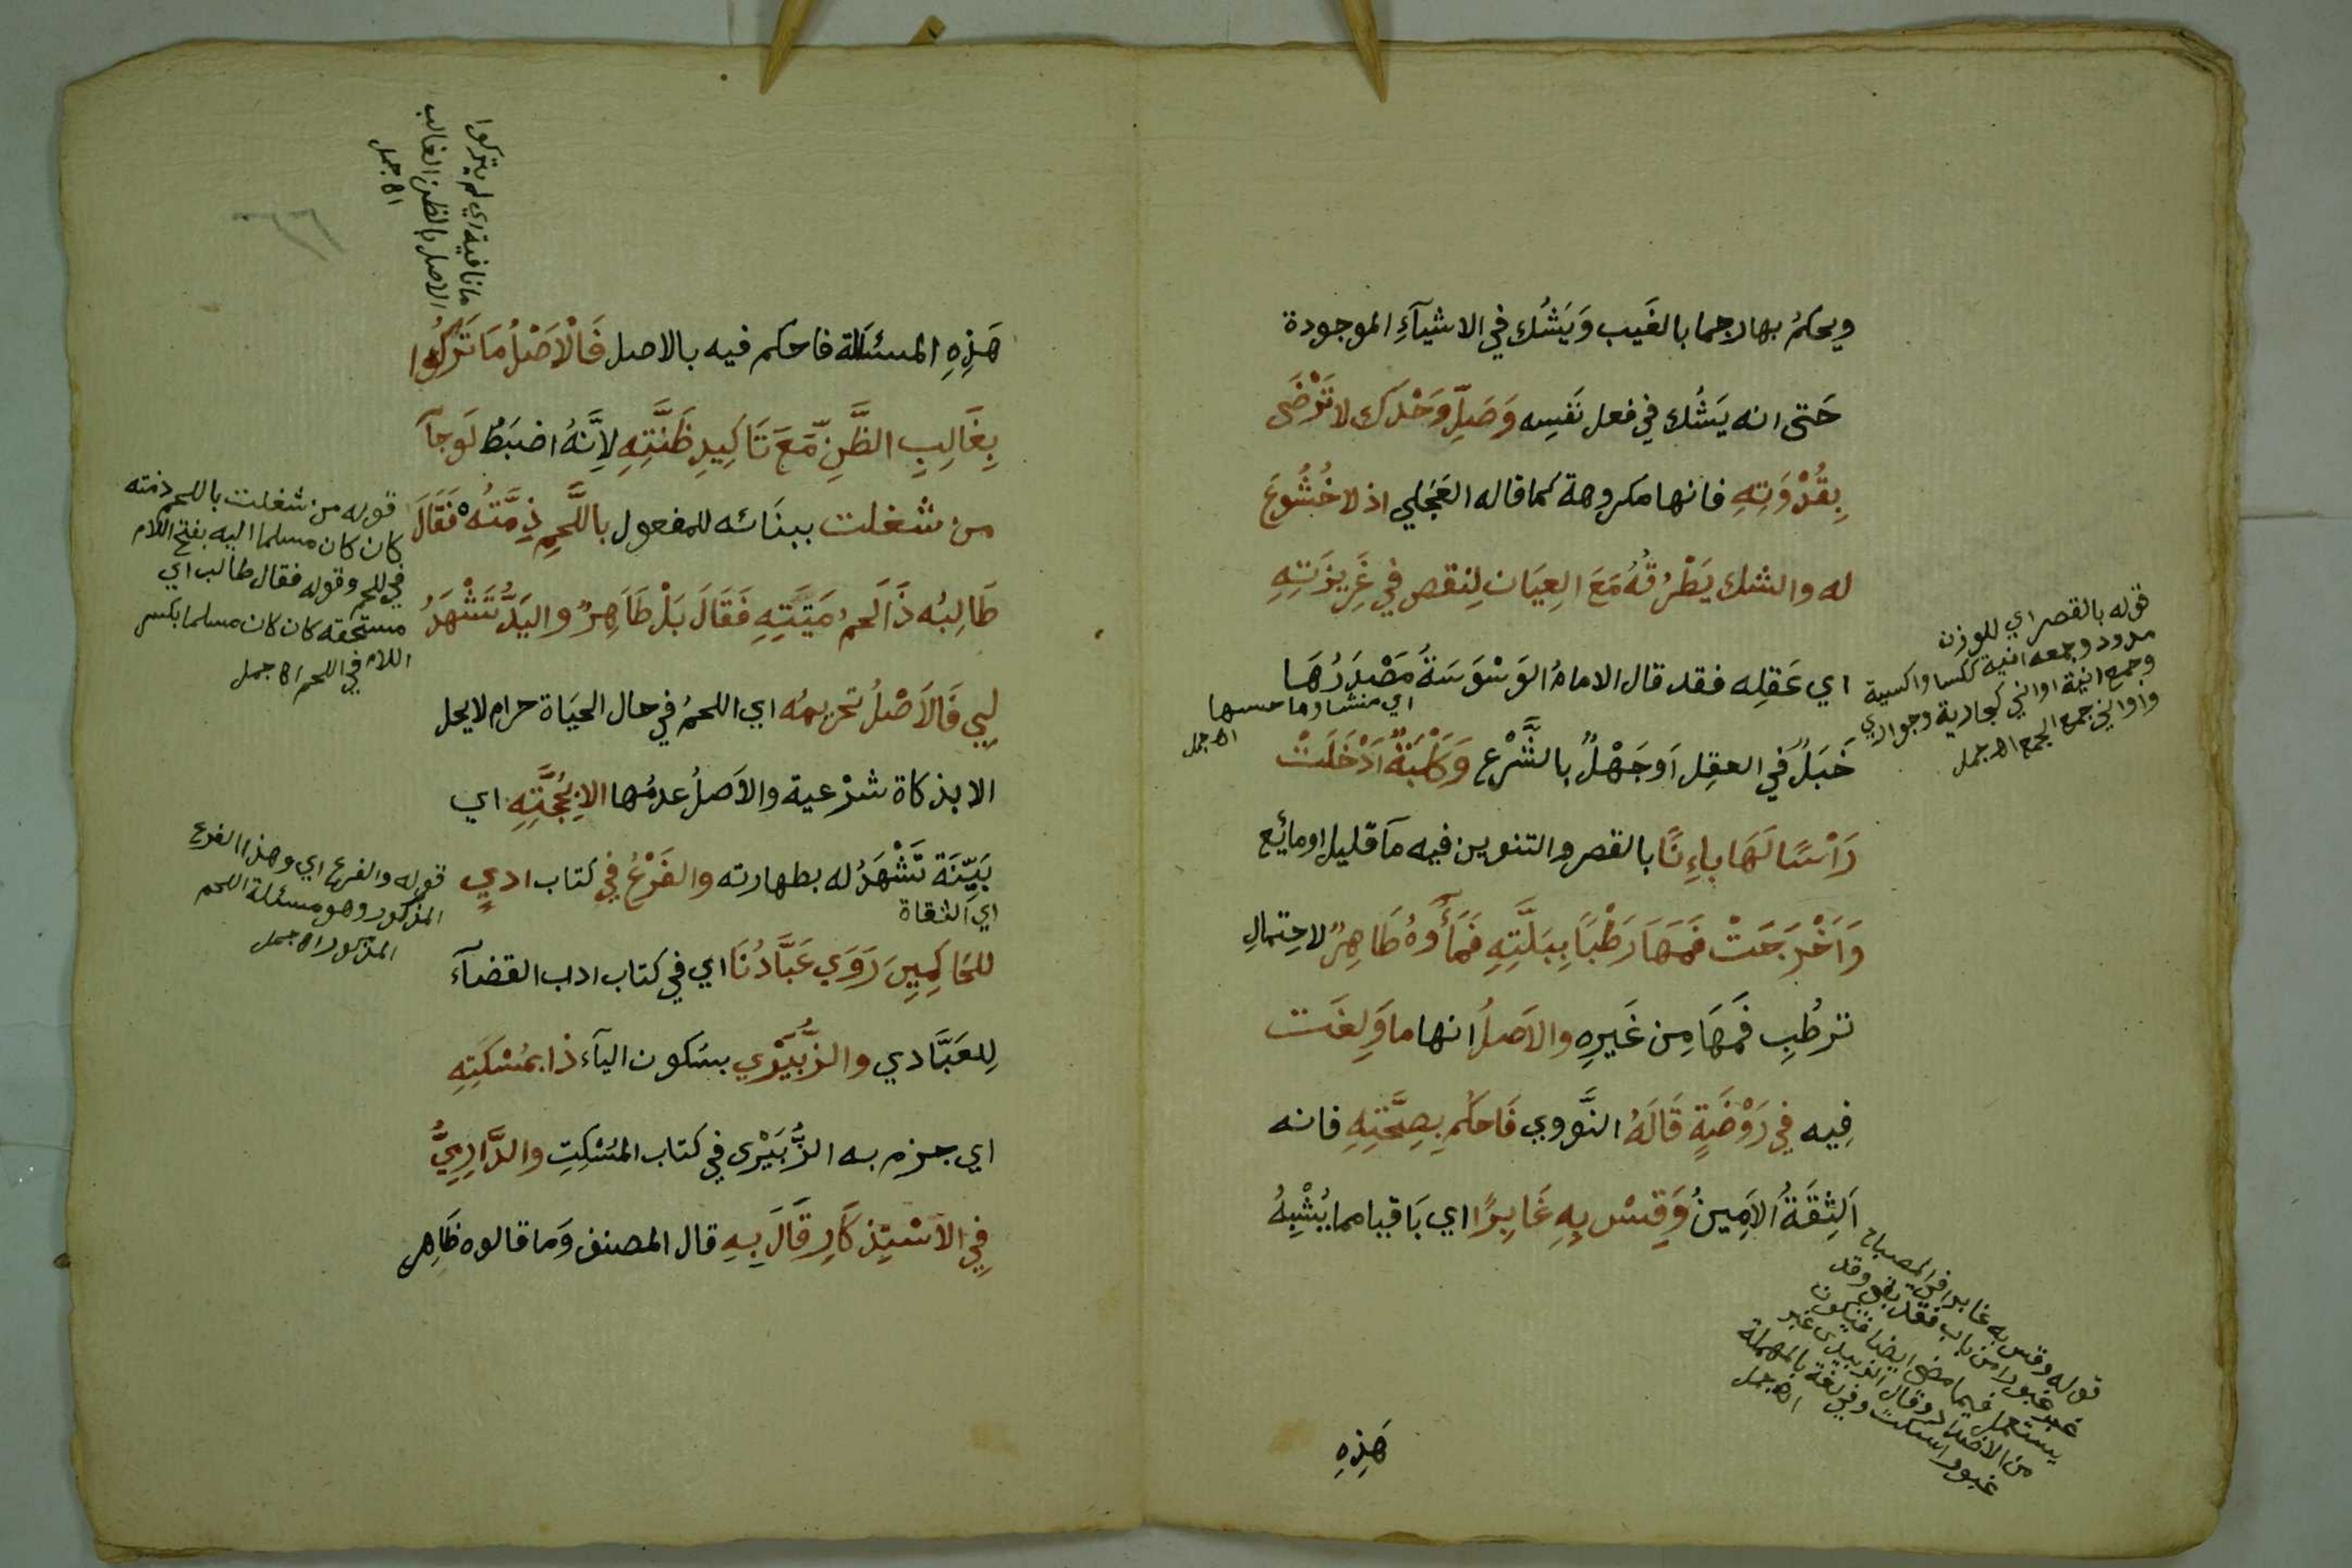 ويحكمُ بها رجما بالغَيب وَيَشُك في الاشيآءِ الموجودة
حَتى انه يَشُك في فعل نَفسِه وَصَلِّ وَحْدَك لا تَرْضَى
بِقُدْوَتِهِ فانها مكروهة كما قاله العَجَلي اذ لا خُشُوعَ
له والشك يَطْرُقُهُ مَعَ العِيَان لِنقص في غَرِيزَتِهِ
اي عَقلِه فقد قال الامامُ الوَسْوَسَةُ مَصْدَرُهَا
اي منشاوها
اه جمل
خَبَلٌ في العقِل اَو جَهْلٌ بالشَّرْع وَكَلْبَةٌ اَدْخَلَتْ
رَأسًا لَهَا بإِنًا بالقصر والتنوين فيه مآ قليل او مائع
وَاَخْرَجَتْ فَمَهَا رَطْبًا بِبَلَّتِهِ فَمَآؤهُ طَاهِرٌ لاحِتمالِ
ترطُبِ فَمهَا مِن غَيرِه والاَصلُ انها ما وَلِغَت
فِيه في رَوْضَةٍ قَالَهُ النَّووي فَاحكُم بِصِحَّتِهِ فانه
اَلثِقَةُ الاَمِينُ وَقِسْ بِهِ غَابِرًا اي بَاقيا مما يُشْبِهُ
هَذِهِ
قوله بالقصر اي للوزن
مدود وجمعه انية ككسا واكسية
وجمع انية اواني كجارية وجواري
واواني جمع الجمع اه جمل
قوله وقس به غابرا في المصباح
غبر غبورا من باب فقد بقي وقد
يستعمل فيما مضى ايضا فيكون
من الاضداد وقال الزبيدي غبر
غبورا سكت وفي لغة بالمهملة
اه جمل
هَذِهِ المسئلة فاحكم فيه بالاصل فَالْاَصْلُ مَا تَرَكُوا
بِغَالِبِ الظَّنِّ مَعَ تَاكِيدِ ظَنَّتِهِ لاِنَّهُ اضبَطُ لَو جآ
من شغلت ببنَائه للمفعول باللَّحمِ ذِمَّتُه فَقَالَ
طَالِبُه ذَا لَحمُ مَيتَتِهِ فَقَالَ بَلْ طَاهِرٌ واليَدُ تَشْهَدُ
لِيي فَالاَصْلُ تحريمُه اي اللحمُ في حال الحيَاة حرام لا يحل
الا بذكاة شرْعية والاَصلُ عدمُها الا بِحُجَّتِهِ اي
بَيِّنَة تَشْهَدُ له بطهارته والفَرْعُ في كتاب ادبٍ
اي الثقاة
للحَاكِمِينَ رَوَي عَبَّادُنَا اي في كتاب اداب القضآء
لِلعَبَّادي والزُّبَيْرِي بسَكون اليآء ذا بمُسْكِتِهِ
اي جزم به الزُّبَيْرى في كتاب المُسْكِتِ والدَّارِمِيُّ
فِي الاَسْتِذكَارِ قَالَ بِهِ قال المصنف وَما قالوه ظَاهِر
ما نافية اي لم يتركوا
الاصل بالظن الغالب
اه جمل
قوله من شغلت باللحم ذمته
كان كان مسلما اليه بفتح اللام
في اللحم وقوله فقال طالب اي
مستحقه كان كان مسلما بكسر
اللام في اللحم اه جمل
قوله والفرع اي وهذا الفرع
المذكور وهو مسئلة اللحم
المذكور اه جمل